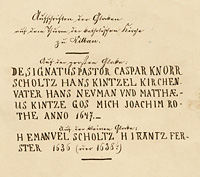 Aufschriften der Glocken
aus dem Thurm der katholischen Kirche
zu Nilbau.
Auf der großen Glocke:
DESIGNATUS PASTOR CASPAR KNORR
SCHOLTZ HANS KINTZEL KIRCHEN
VATER HANS NEUMAN UND MATTHÆ-
US KINTZE GOS MICH JOACHIM RO-
THE ANNO 1647.
Auf der kleinen Glocke:
H EMANUEL SCHOLTZ H I RANTZ FER-
STER 1636 (oder 1686?)